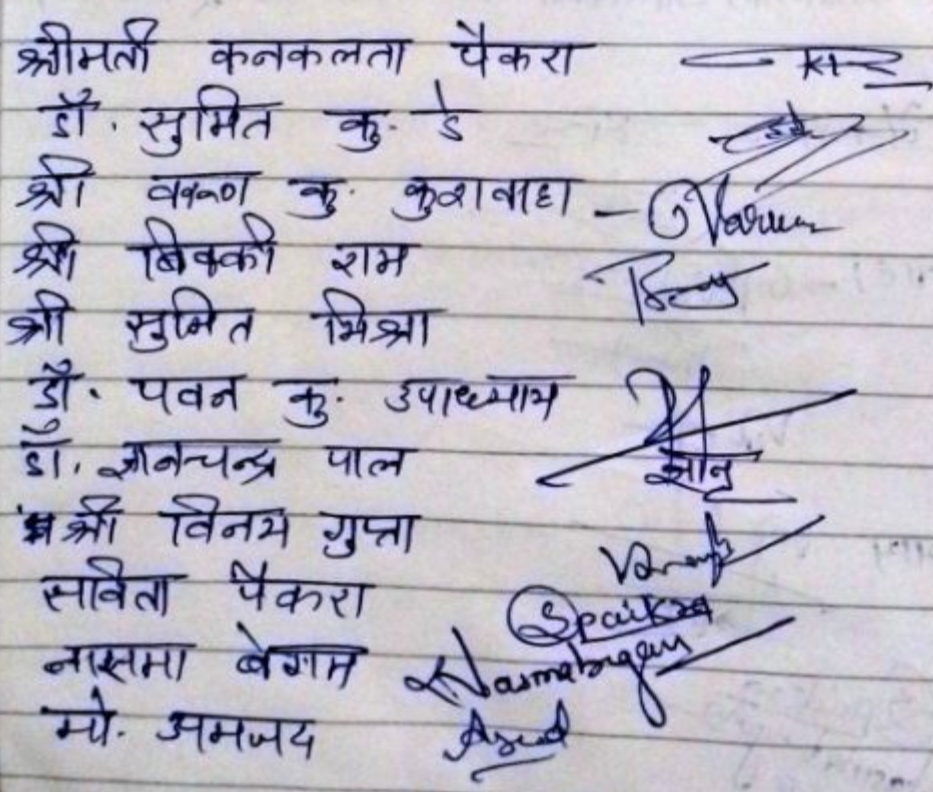 श्रीमती कनकलता पैकरा
डॉ. सुमित कु. डे
श्री वरूण कु. कुशवाहा - Varun
श्री विक्की राम
श्री सुमित मिश्रा
डॉ. पवन कु. उपाध्याय
डॉ. ज्ञानचन्द्र पाल ज्ञान
श्री विनय गुप्ता
सविता पैकरा Spaikra
नासमा बेगम Nasmabegum
मो. अमजद